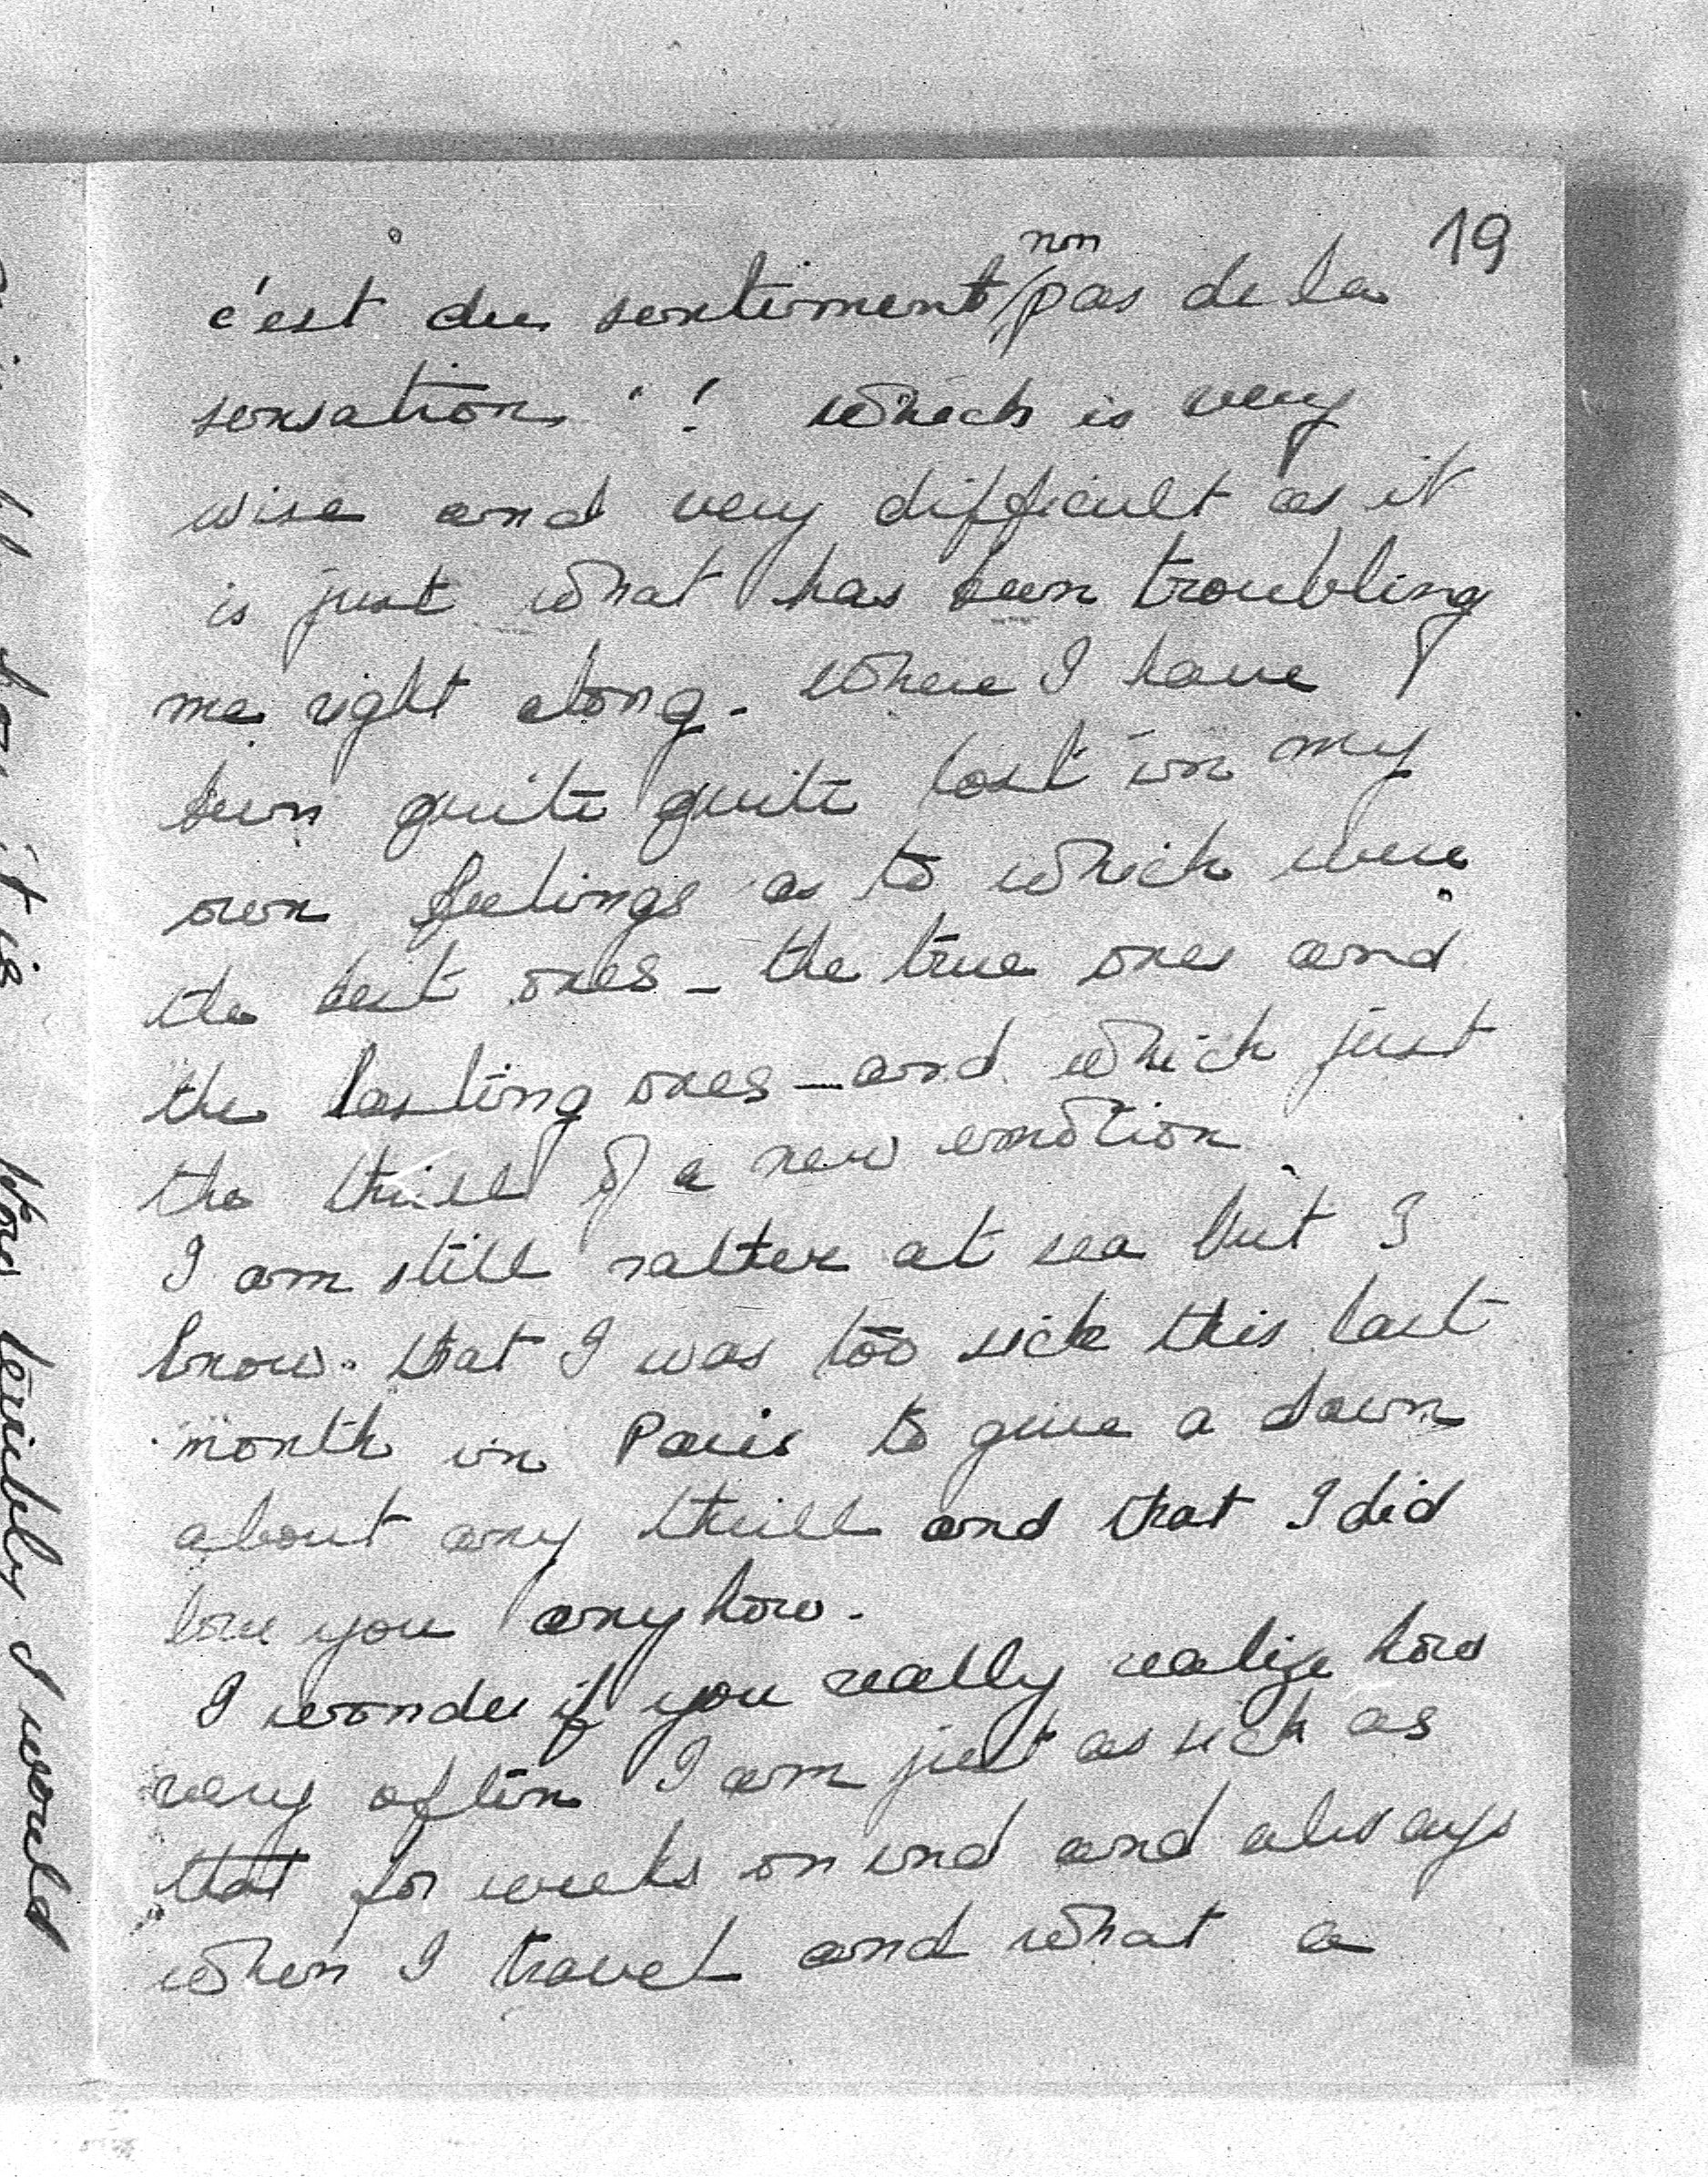 19
c'est du sentiment non pas de la
sensation"! Which is very
wise and very difficult as it
is just what has been troubling
me right along. Where I have
been quite quite lost in my
own feelings as to which were
the best ones - the true ones and
the lasting ones - and which just
the thrill of a new emotion.
I am still rather at sea but I
know that I was too sick this last
month in Paris to give a damn
about any thrill and that I did
love you anyhow.
I wonder if you really realize how
very often I am just as sick as
that for weeks on end and always
when I travel and what a
it is
terribly I would